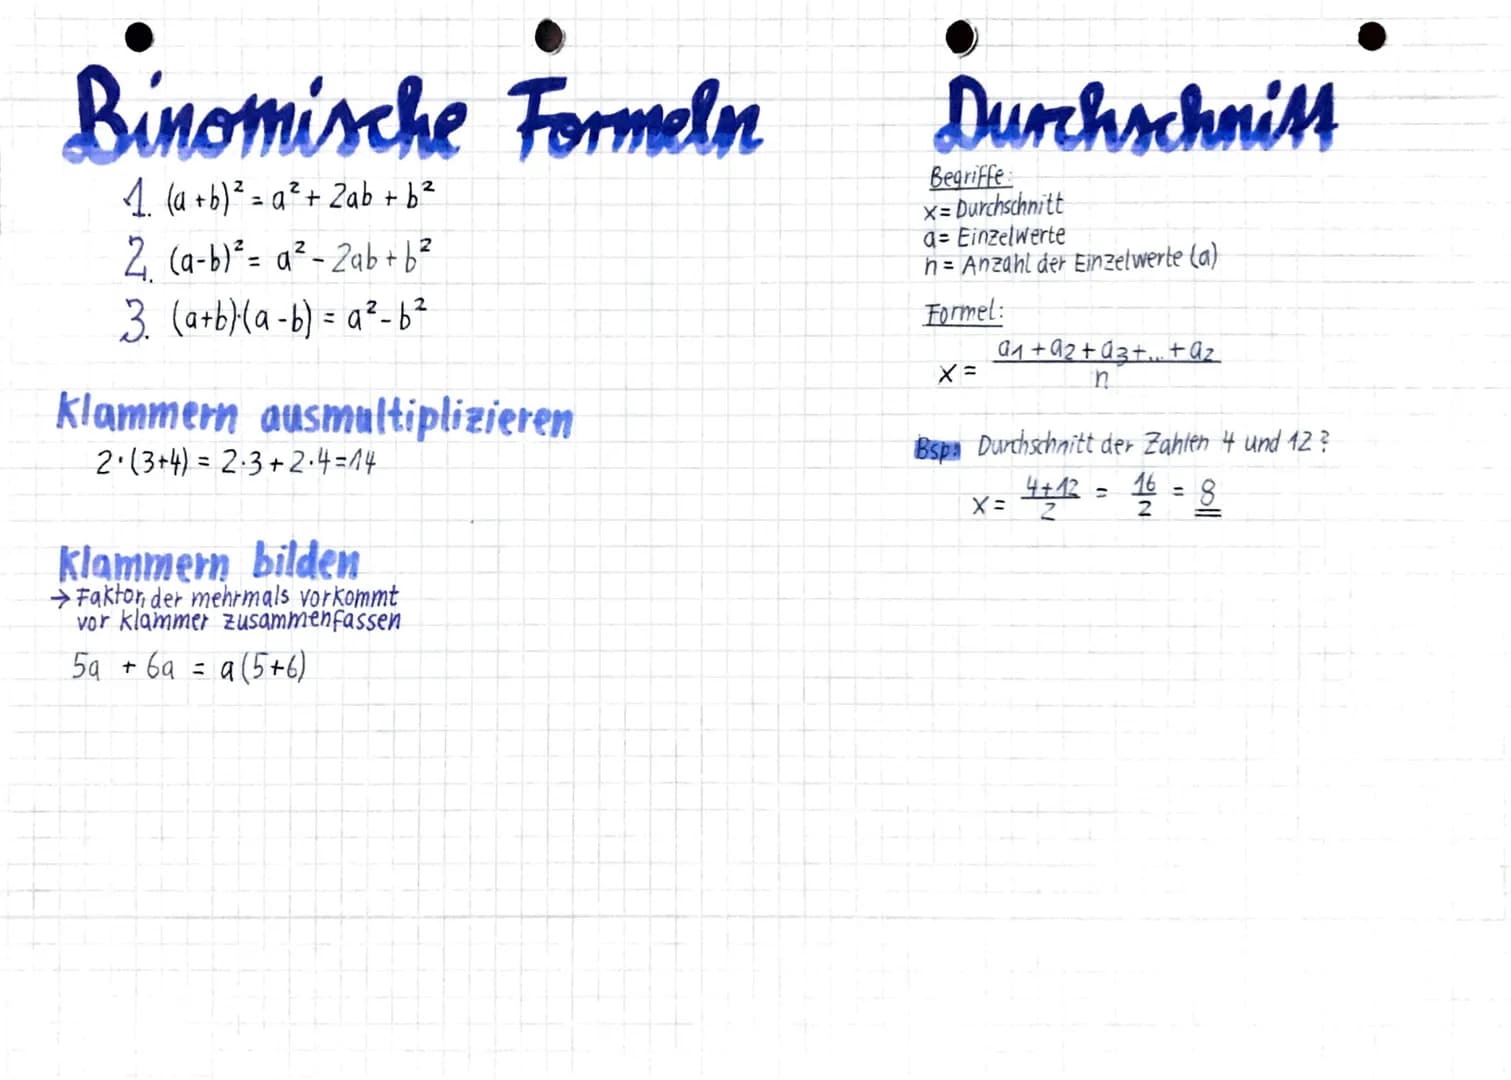 Binomische Formeln
1. (a+b)² = a² + 2ab + b²
2. (a-b)² = a² - 2ab + b²
3. (a+b)·(a-b) = a² - b²
Klammern ausmultiplizieren
2·(3+4) = 2·3 + 2·4 = 14
Klammern bilden
→ Faktor, der mehrmals vorkommt
vor Klammer zusammenfassen
5a + 6a = a(5+6)
Durchschnitt
Begriffe:
x = Durchschnitt
a = Einzelwerte
n = Anzahl der Einzelwerte (a)
Formel:
x = (a₁ + a₂ + a₃ + ... + a_z) / n
Bsp: Durchschnitt der Zahlen 4 und 12?
x = (4+12)/2 = 16/2 = 8